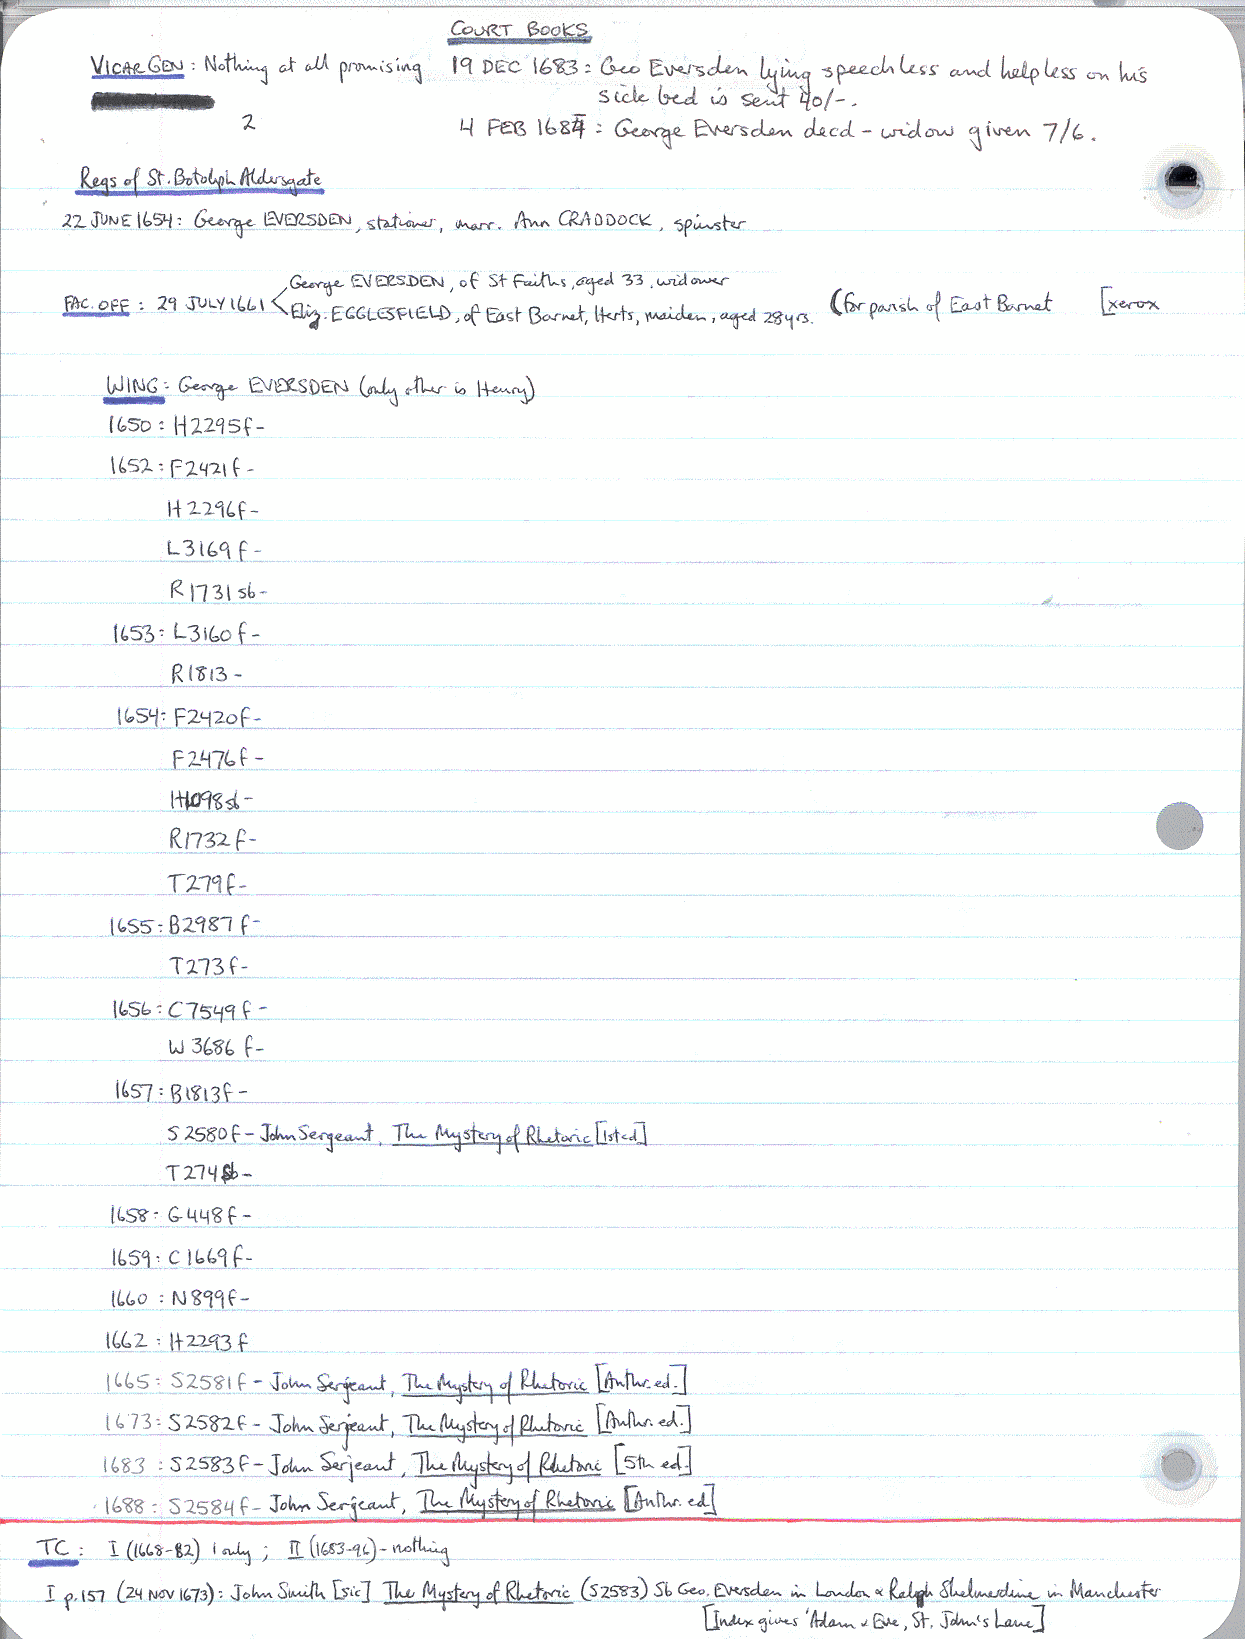 COURT BOOKS
VICAR GEN : Nothing at all promising
19 DEC 1683 : Geo Eversden lying speechless and helpless on his
sick bed is sent 40/-.
2
4 FEB 1684 : George Eversden decd - widow given 7/6.
Regs of St. Botolph Aldersgate
22 JUNE 1654 : George EVERSDEN, stationer, marr. Ann CRADDOCK, spinster
George EVERSDEN, of St Faiths, aged 33, widower
FAC. OFF : 29 JULY 1661
Eliz. EGGLESFIELD, of East Barnet, Herts, maiden, aged 28 yrs. (for parish of East Barnet [xerox
WING : George EVERSDEN (only other is Henry)
1650 : H2295 f -
1652 : F2421 f -
H2296 f -
L3169 f -
R1731 sb -
1653 : L3160 f -
R1813 -
1654 : F2420 f -
F2476 f -
H1098 sb -
R1732 f -
T279 f -
1655 : B2987 f -
T273 f -
1656 : C7549 f -
W3686 f -
1657 : B1813 f -
S2580 f - John Sergeant, The Mystery of Rhetoric [1st ed]
T274 sb -
1658 : G448 f -
1659 : C1669 f -
1660 : N899 f -
1662 : H2293 f
1665 : S2581 f - John Sergeant, The Mystery of Rhetoric [Anthr. ed.]
1673 : S2582 f - John Serjeant, The Mystery of Rhetoric [Anthr. ed.]
1683 : S2583 f - John Serjeant, The Mystery of Rhetoric [5th ed.]
1688 : S2584 f - John Sergeant, The Mystery of Rhetoric [Anthr. ed]
TC : I (1668-82) 1 only ; II (1683-96) - nothing
I p.157 (24 NOV 1673) : John Smith [sic] The Mystery of Rhetoric (S2583) Sb Geo. Eversden in London & Ralph Shelmerdine in Manchester
[Index gives 'Adam & Eve, St. John's Lane]